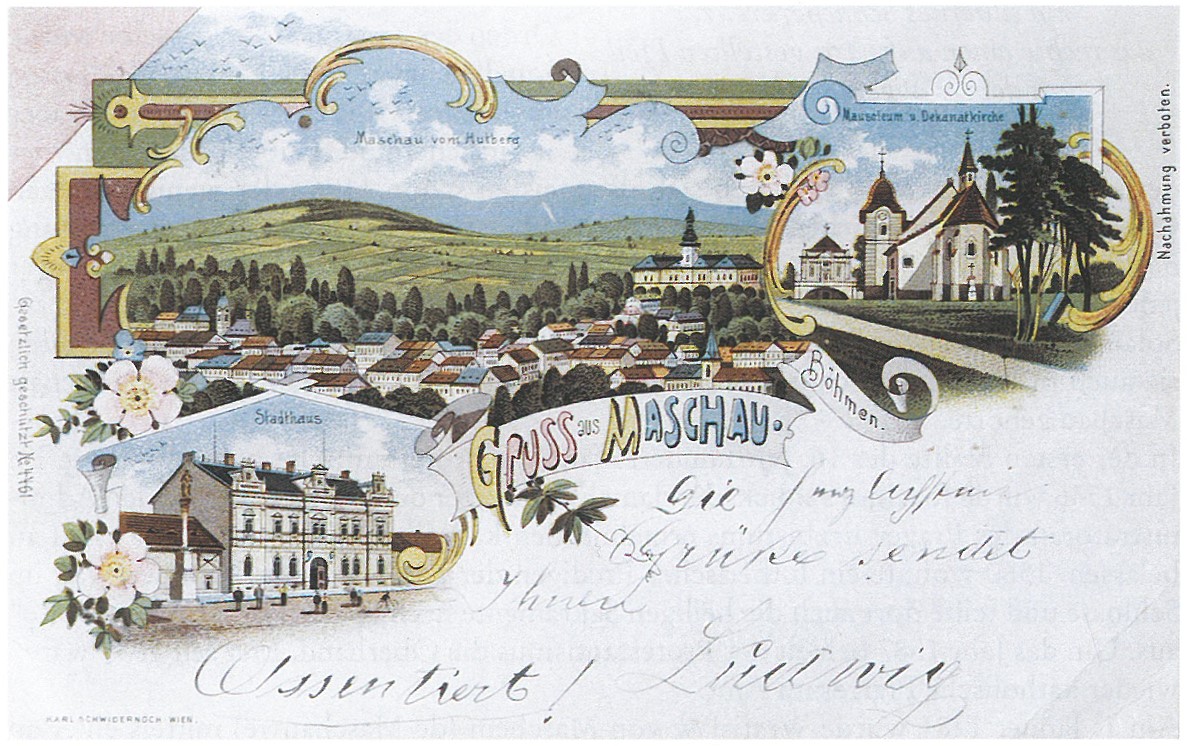 Maschau vom Hutberg
Mausoleum u. Dekanatkirche
Nachahmung verboten.
Böhmen.
GRUSS aus MASCHAU.
Stadthaus
Gesetzlich geschützt No 4461
Die
Grüße sendet
Ihnen
Ludwig
Assentiert!
KARL SCHWIDERNOCH WIEN.